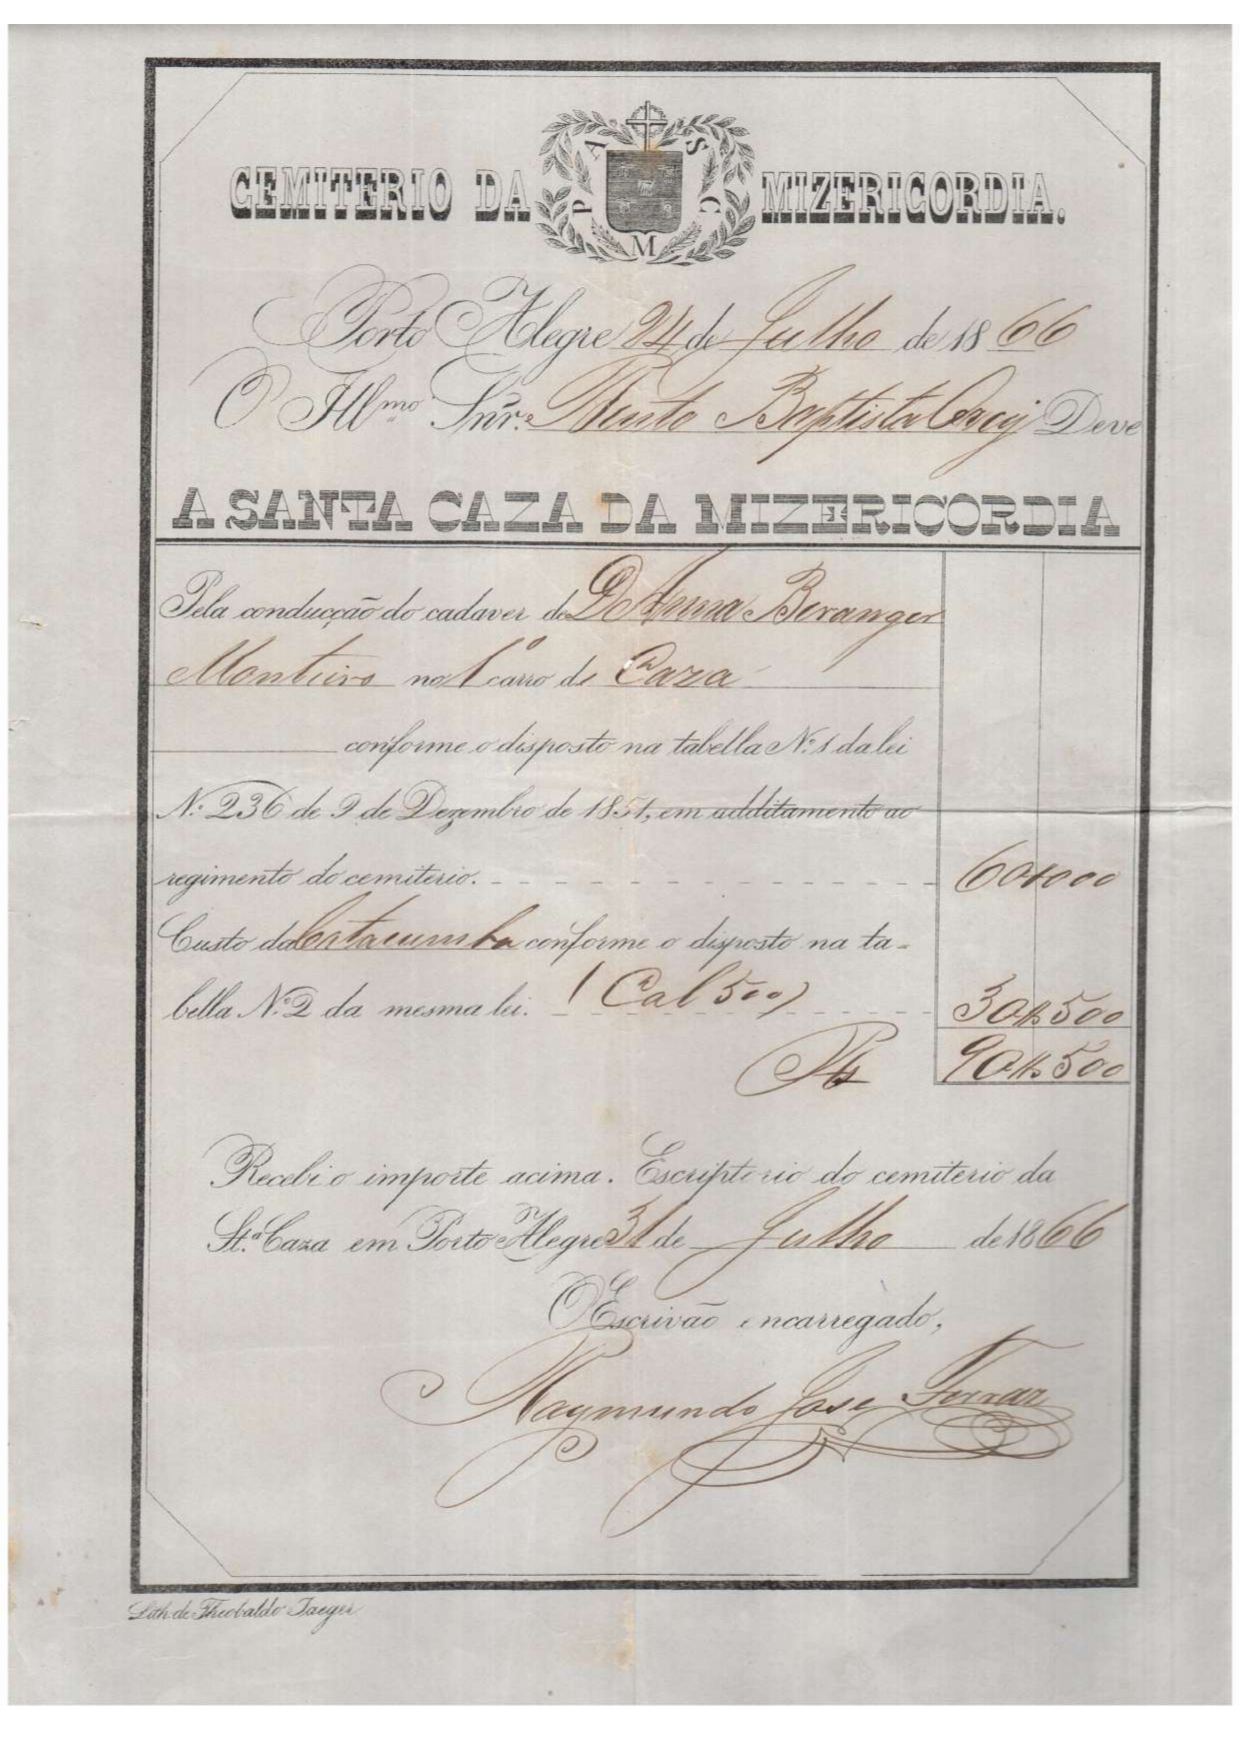 CEMITERIO DA MIZERICORDIA.
P A S C M
Porto Alegre 24 de Julho de 1866
O Illmo Snr. Bento Baptista Orcij Deve
A SANTA CAZA DA MIZERICORDIA
Pela conducção do cadaver de D. Anna Beranger
Monteiro no 1º carro de Caza
conforme o disposto na tabella Nº 1 da lei
Nº 236 de 9 de Dezembro de 1851, em additamento ao
regimento do cemiterio. 60$000
Custo da Catacumba conforme o disposto na ta-
bella Nº 2 da mesma lei. (Cal 500) 30$500
Rs 90$500
Recebi o importe acima. Escriptorio do cemiterio da
Sta Caza em Porto Alegre 31 de Julho de 1866
O Escrivão encarregado,
Raymundo José Ferraz
Lith. de Theobaldo Jaeger